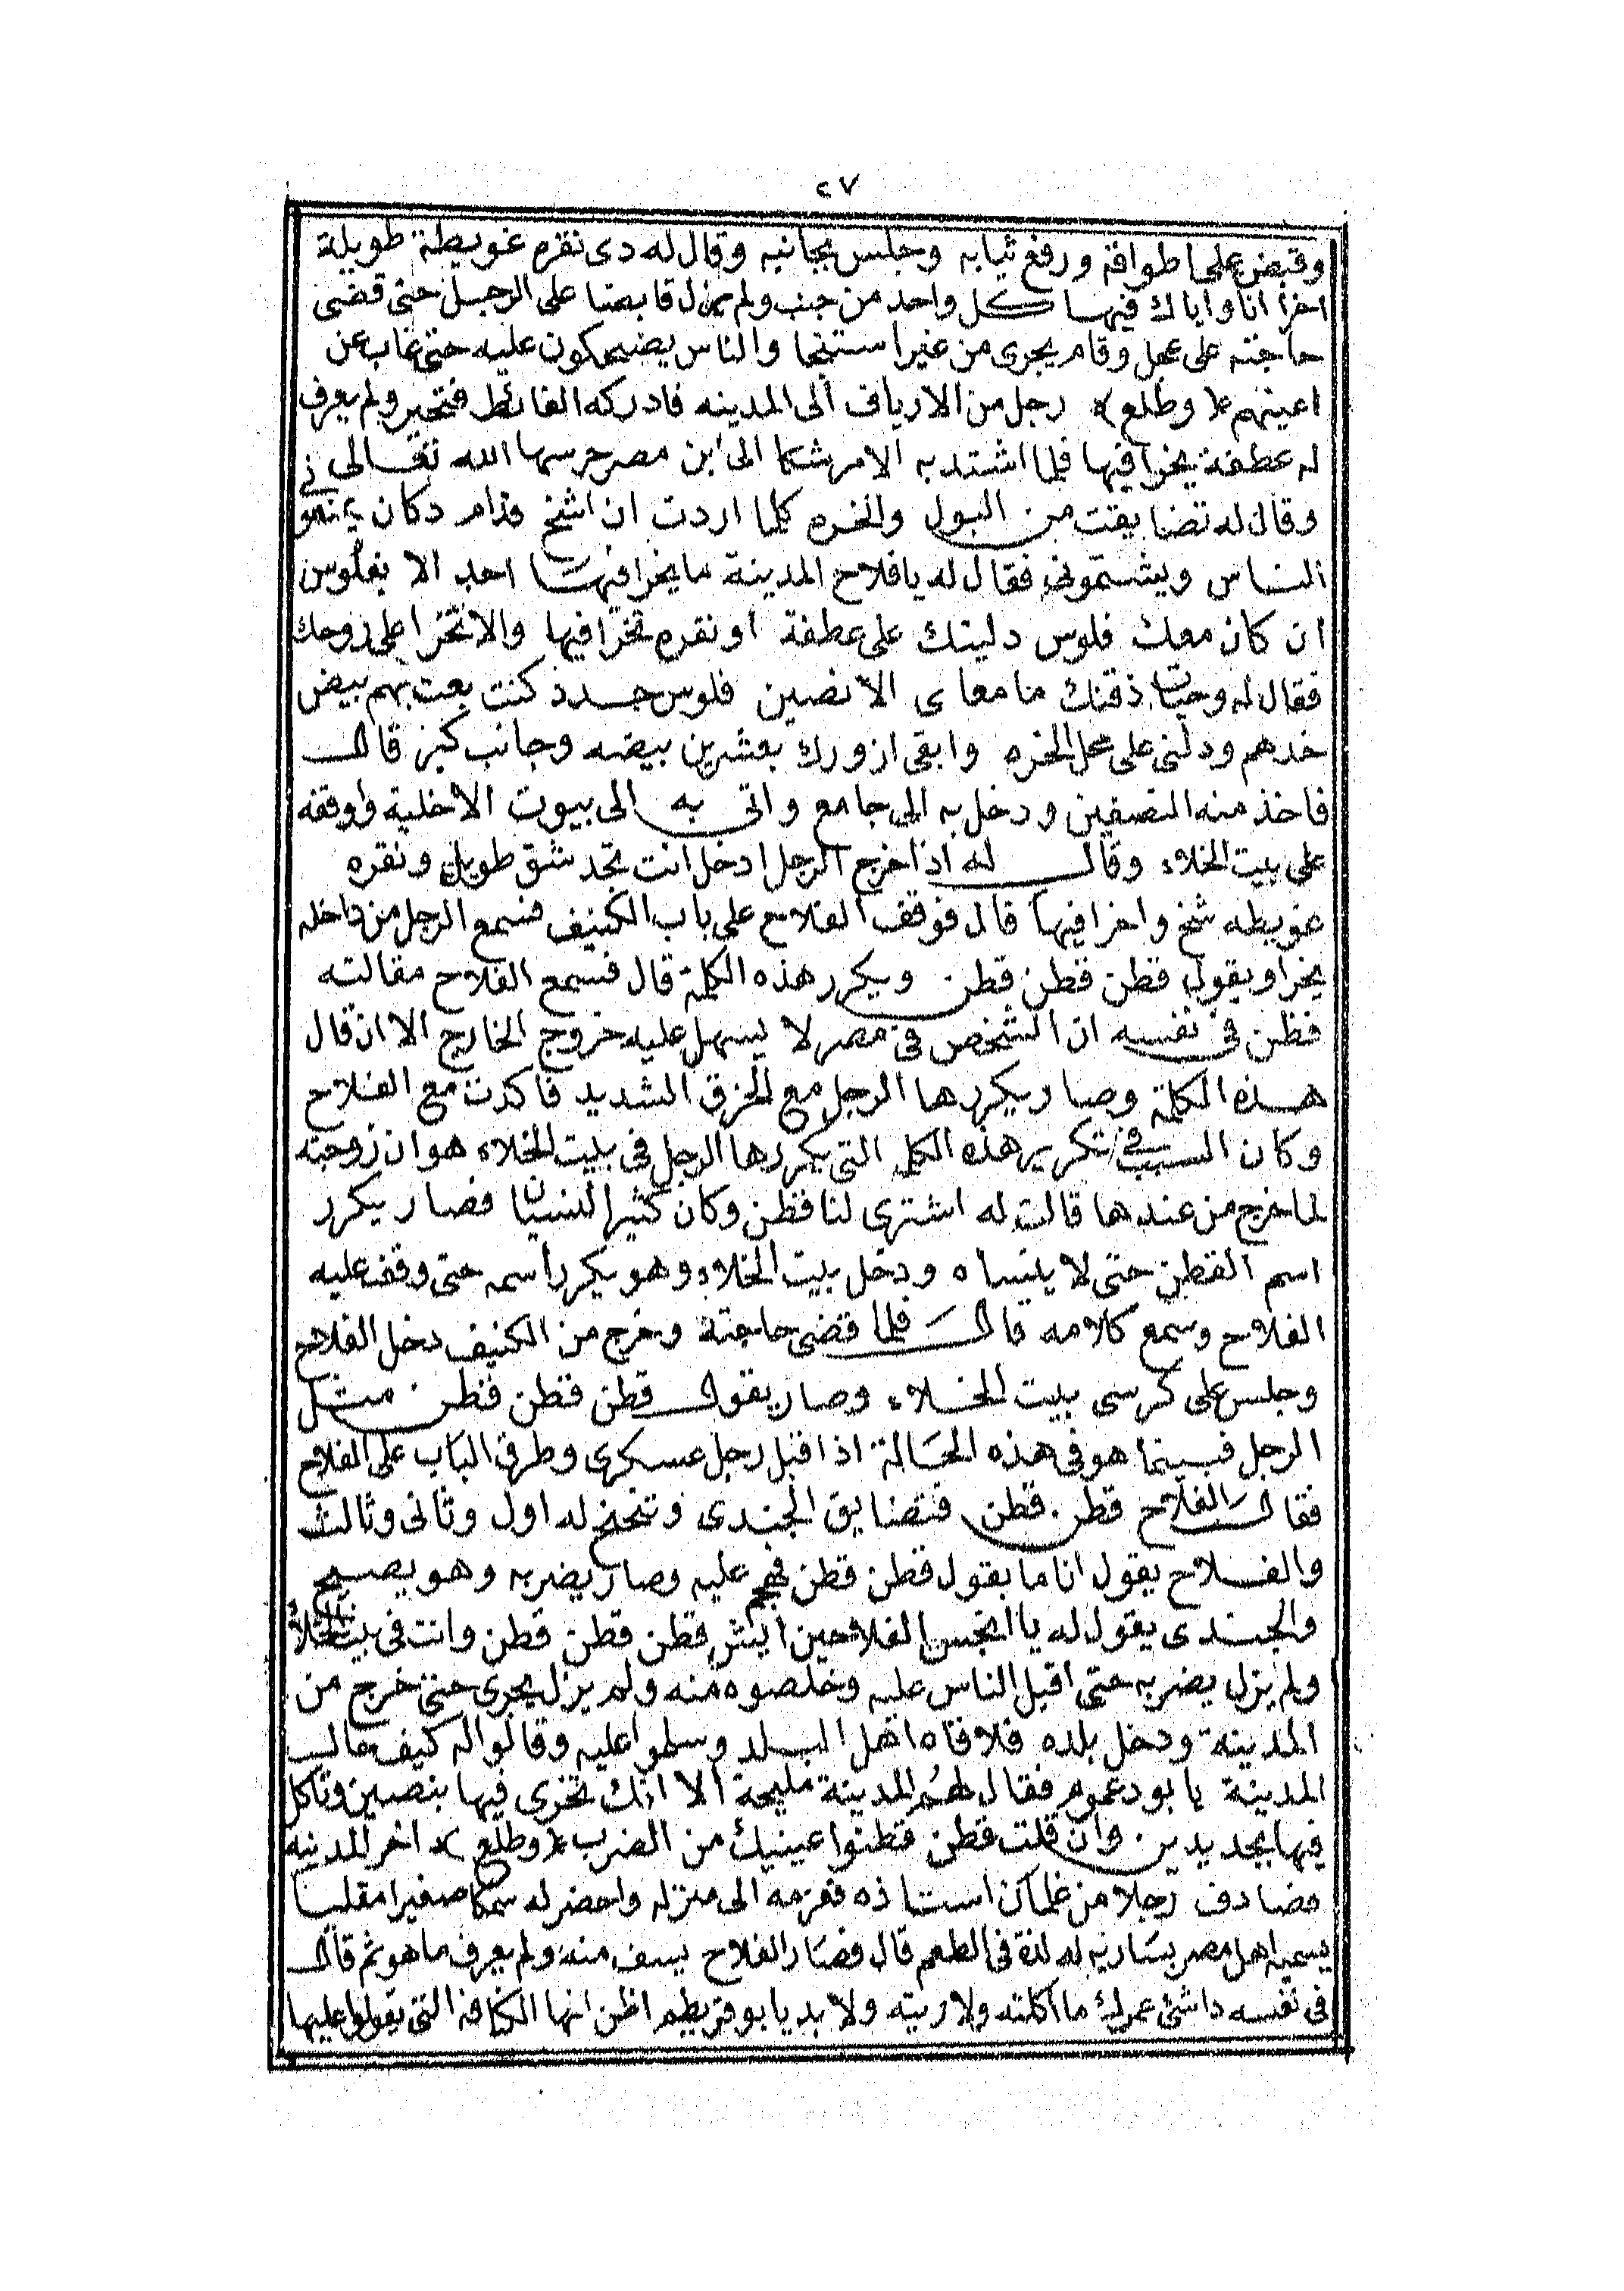 ٢٧
وقبض على اطواقه ورفع ثيابه وجلس بجانبه وقال له دى نقره غويطة طويلة
اخرا انا واياك فيها كل واحد من جنب ولم يزل قابضا على الرجل حتى قضى
حاجته على عجل وقام يجرى من غير استنجا والناس يضحكون عليه حتى غاب عن
اعينهم (وطلع) رجل من الارياف الى المدينه فادركه الغائط فتحير ولم يعرف
له عطفة يخرا فيها فلما اشتد به الامر شكا الى ابن مصر حرسها الله تعالى
وقال له تضايقت من البول والخره كلما اردت ان اشخ قدام دكان يمنعونى
الناس ويشتمونى فقال له يا فلاح المدينة ما يخرا فيها احد الا بفلوس
ان كان معك فلوس دليتك على عطفة او نقره تخرا فيها والا تخرا على روحك
فقال له وحيات ذقنك ما معاى الا نصين فلوس جدد كنت بعت بهم بيض
خدهم ودلنى على محل الخره وابقى ازورك بعشرين بيضه وجانب كبز قال
فاخذ منه النصفين ودخل به الى جامع واتى به الى بيوت الاخلية واوقفه
على بيت الخلاء وقال له اذا خرج الرجل ادخل انت تجد شق طويل ونقره
غويطه شخ واخرا فيها قال فوقف الفلاح على باب الكنيف فسمع الرجل من داخله
يخرا ويقول قطن قطن قطن ويكرر هذه الكلمة قال فسمع الفلاح مقالته
فظن فى نفسه ان الشخص فى مصر لا يسهل عليه خروج الخارج الا ان قال
هذه الكلمة وصار يكررها الرجل مع الحزق الشديد فاكدت مع الفلاح
وكان السبب فى تكرير هذه الكلمه التى يكررها الرجل فى بيت الخلاء هو ان زوجته
لما خرج من عندها قالت له اشترى لنا قطن وكان كثير النسيان فصار يكرر
اسم القطن حتى لا ينساه ودخل بيت الخلاء وهو يكرر اسمه حتى وقف عليه
الفلاح وسمع كلامه قال فلما قضى حاجته وخرج من الكنيف دخل الفلاح
وجلس على كرسى بيت الخلاء وصار يقول قطن قطن قطن مثل
الرجل فبينما هو فى هذه الحالة اذ اقبل رجل عسكرى وطرق الباب على الفلاح
فقال الفلاح قطن قطن فتضايق الجندى وتنحنح له اول وثانى وثالث
والفلاح يقول انا ما بقول قطن قطن فهجم عليه وصار يضربه وهو يصيح
والجندى يقول له يا انجس الفلاحين ايش قطن قطن قطن وانت فى بيت الخلا
ولم يزل يضربه حتى اقبل الناس عليه وخلصوه منه ولم يزل يجرى حتى خرج من
المدينة ودخل بلده فلاقاه اهل البلد وسلموا عليه وقالوا له كيف حال
المدينة يا بو دعموم فقال لهم المدينة مليحة الا انك تخرى فيها بنصين وتاكل
فيها بجديدين وان قلت قطن قطنوا عينيك من الضرب (وطلع) اخر المدينه
فصادف رجلا من غلمان استاذه فعزمه الى منزله واحضر له سمكا صغيرا مقليا
يسميه اهل مصر بساريه له لذة فى الطعم قال فصار الفلاح يسف منه ولم يعرف ما هو ثم قال
فى نفسه دا شئ عمرك ما اكلته ولا ريته ولا بد يا بو قريطم اظن انها الكنافه التى يقولوا عليها